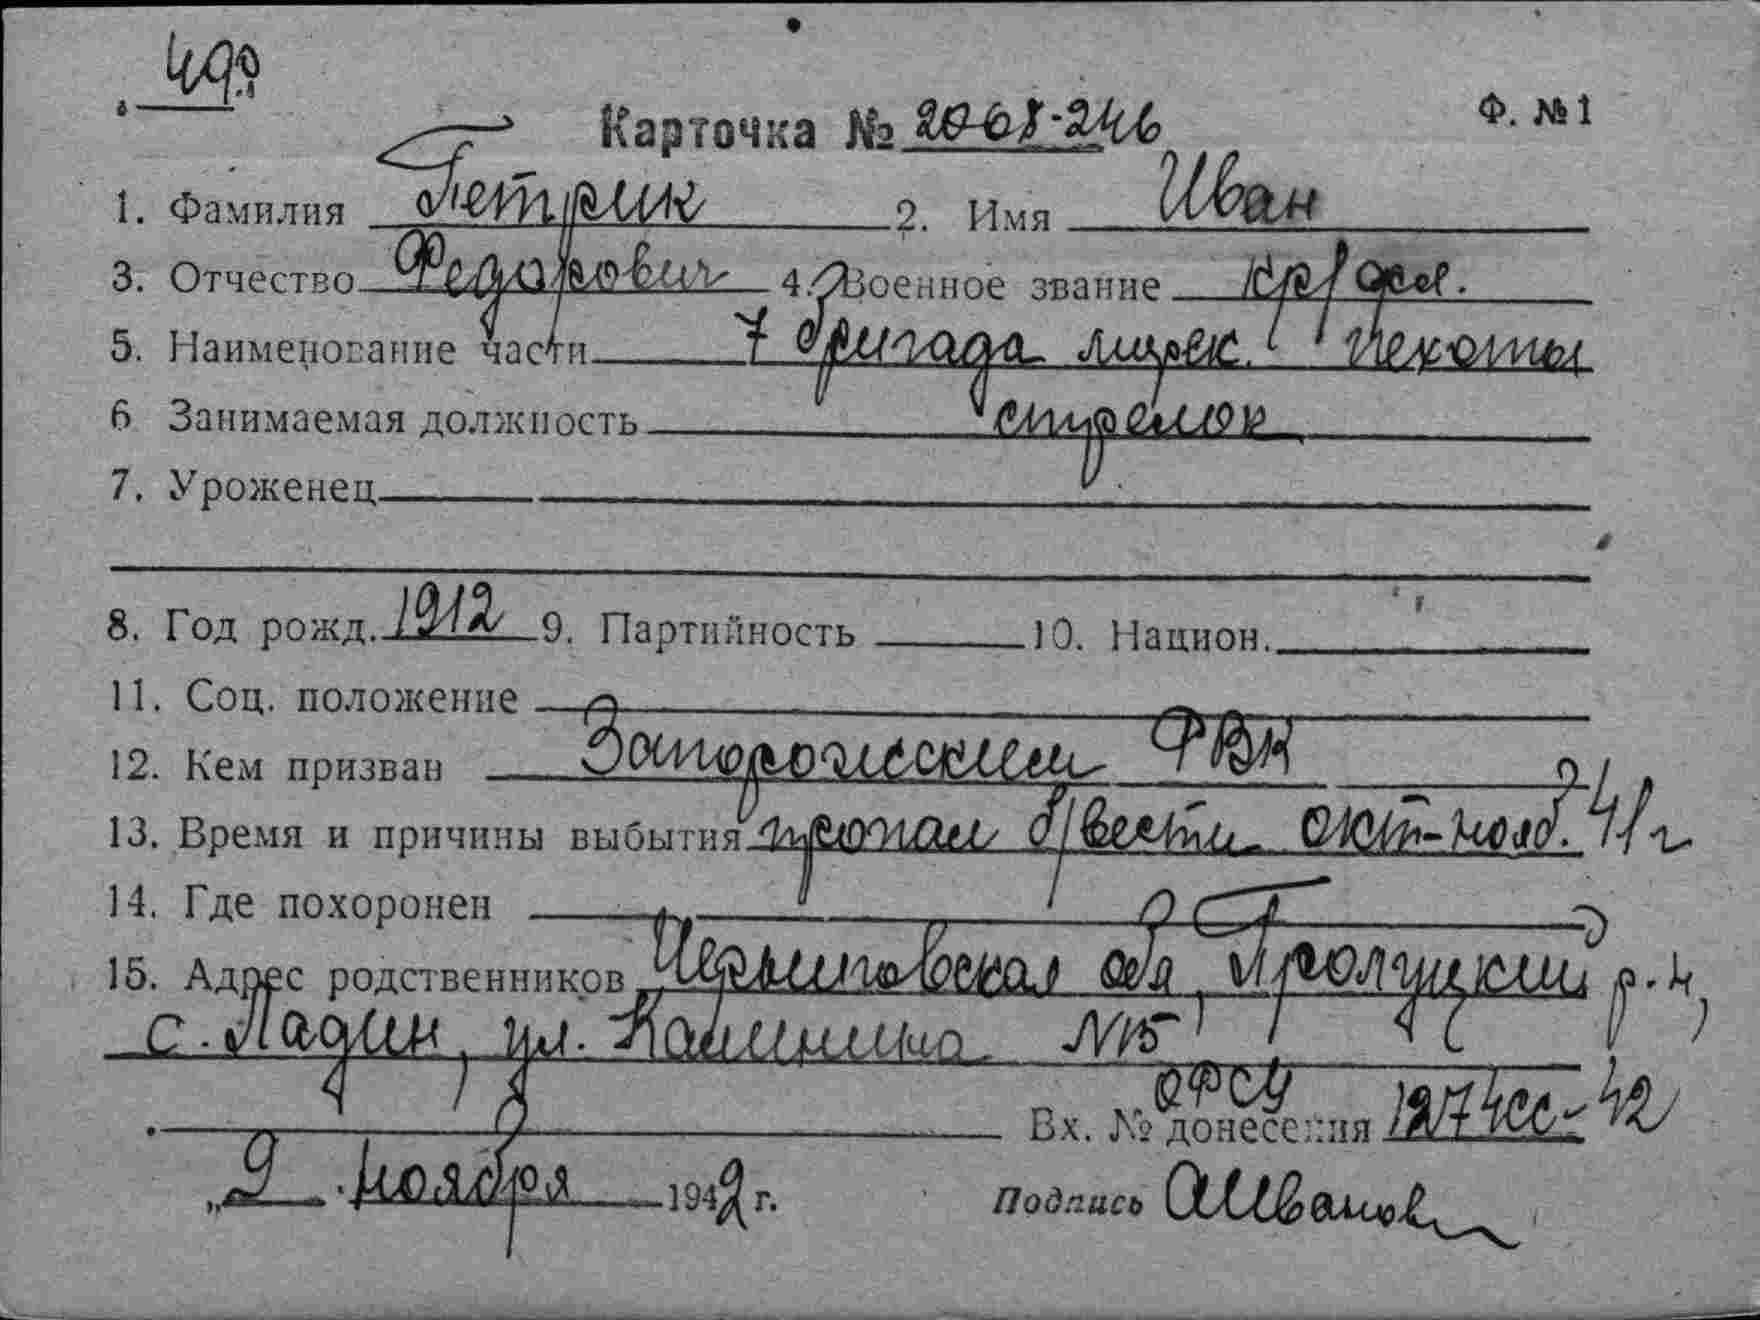 Ф. №1
Карточка № 2068-246
1. Фамилия Петрик 2. Имя Иван
3. Отчество Федорович 4. Военное звание кр/арм.
5. Наименование части 7 бригада морск. пехоты
6 Занимаемая должность стрелок
7. Уроженец
8. Год рожд. 1912 9. Партийность 10. Национ.
11. Соц. положение
12. Кем призван РВК
13. Время и причины выбытия пропал б/вести окт-нояб. 41 г
14. Где похоронен
15. Адрес родственников Черниговская обл, Прилуцкий р-н,
с. Ладин, ул. Калинина №15
Вх. № донесения 1274сс-42
„9 ноября 1942 г. Подпись АИванов